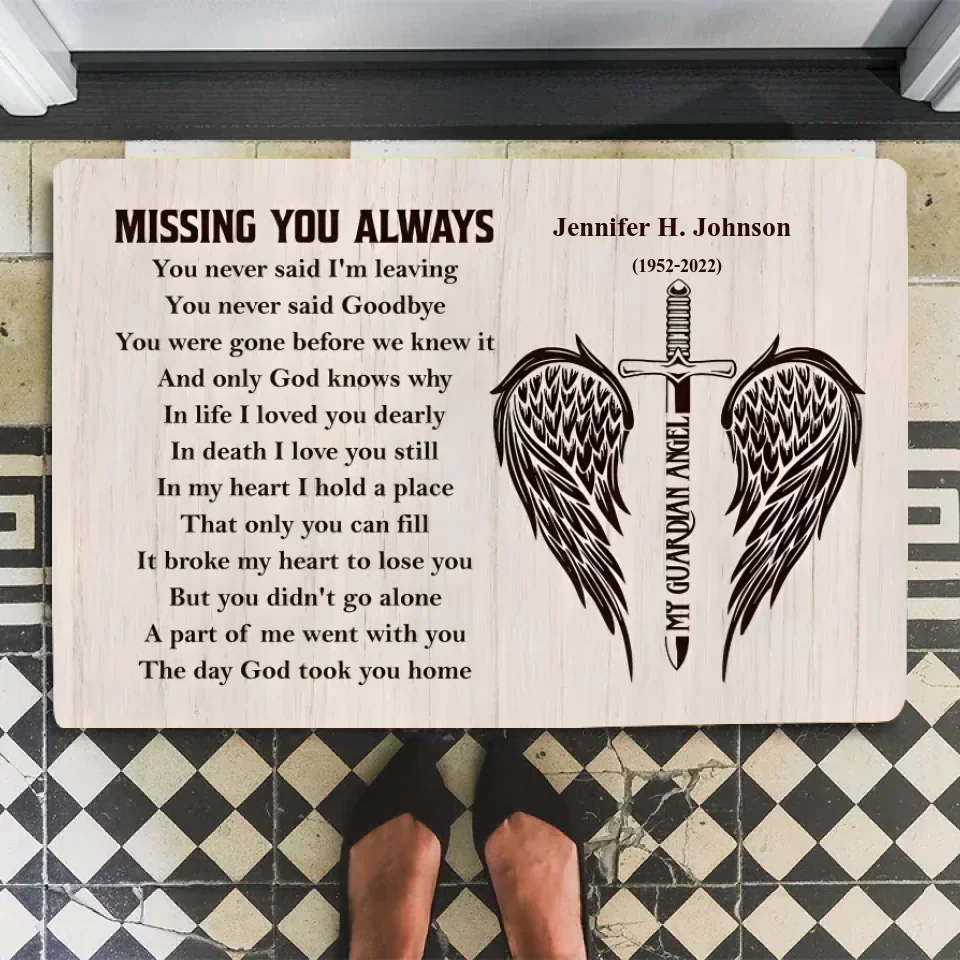 MISSING YOU ALWAYS
You never said I'm leaving
You never said Goodbye
You were gone before we knew it
And only God knows why
In life I loved you dearly
In death I love you still
In my heart I hold a place
That only you can fill
It broke my heart to lose you
But you didn't go alone
A part of me went with you
The day God took you home
Jennifer H. Johnson
(1952-2022)
MY GUARDIAN ANGEL